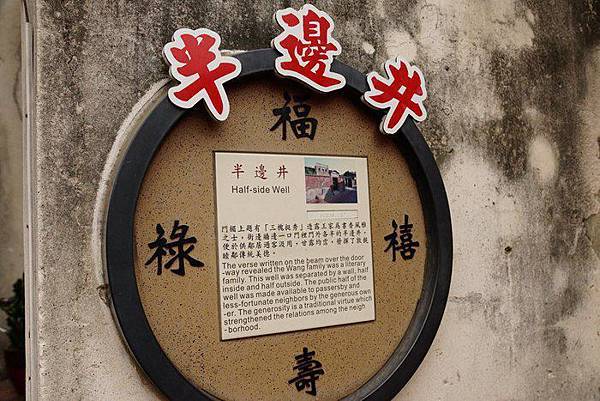 半邊井
福
祿
禧
壽
半邊井
Half-side Well
門楣上題有「三槐挺秀」透露王家為書香風雅
之士，街邊牆邊一口門裡門外各半的半邊井，
便於供鄰居過客汲用，甘露均霑，發揮了敦親
睦鄰傳統美德。
The verse written on the beam over the door
-way revealed the Wang family was a literary
family. This well was separated by a wall, half
inside and half outside. The public half of the
well was made available to passersby and
less-fortunate neighbors by the generous own
-er. The generosity is a traditional virtue which
strengthened the relations among the neigh
- borhood.